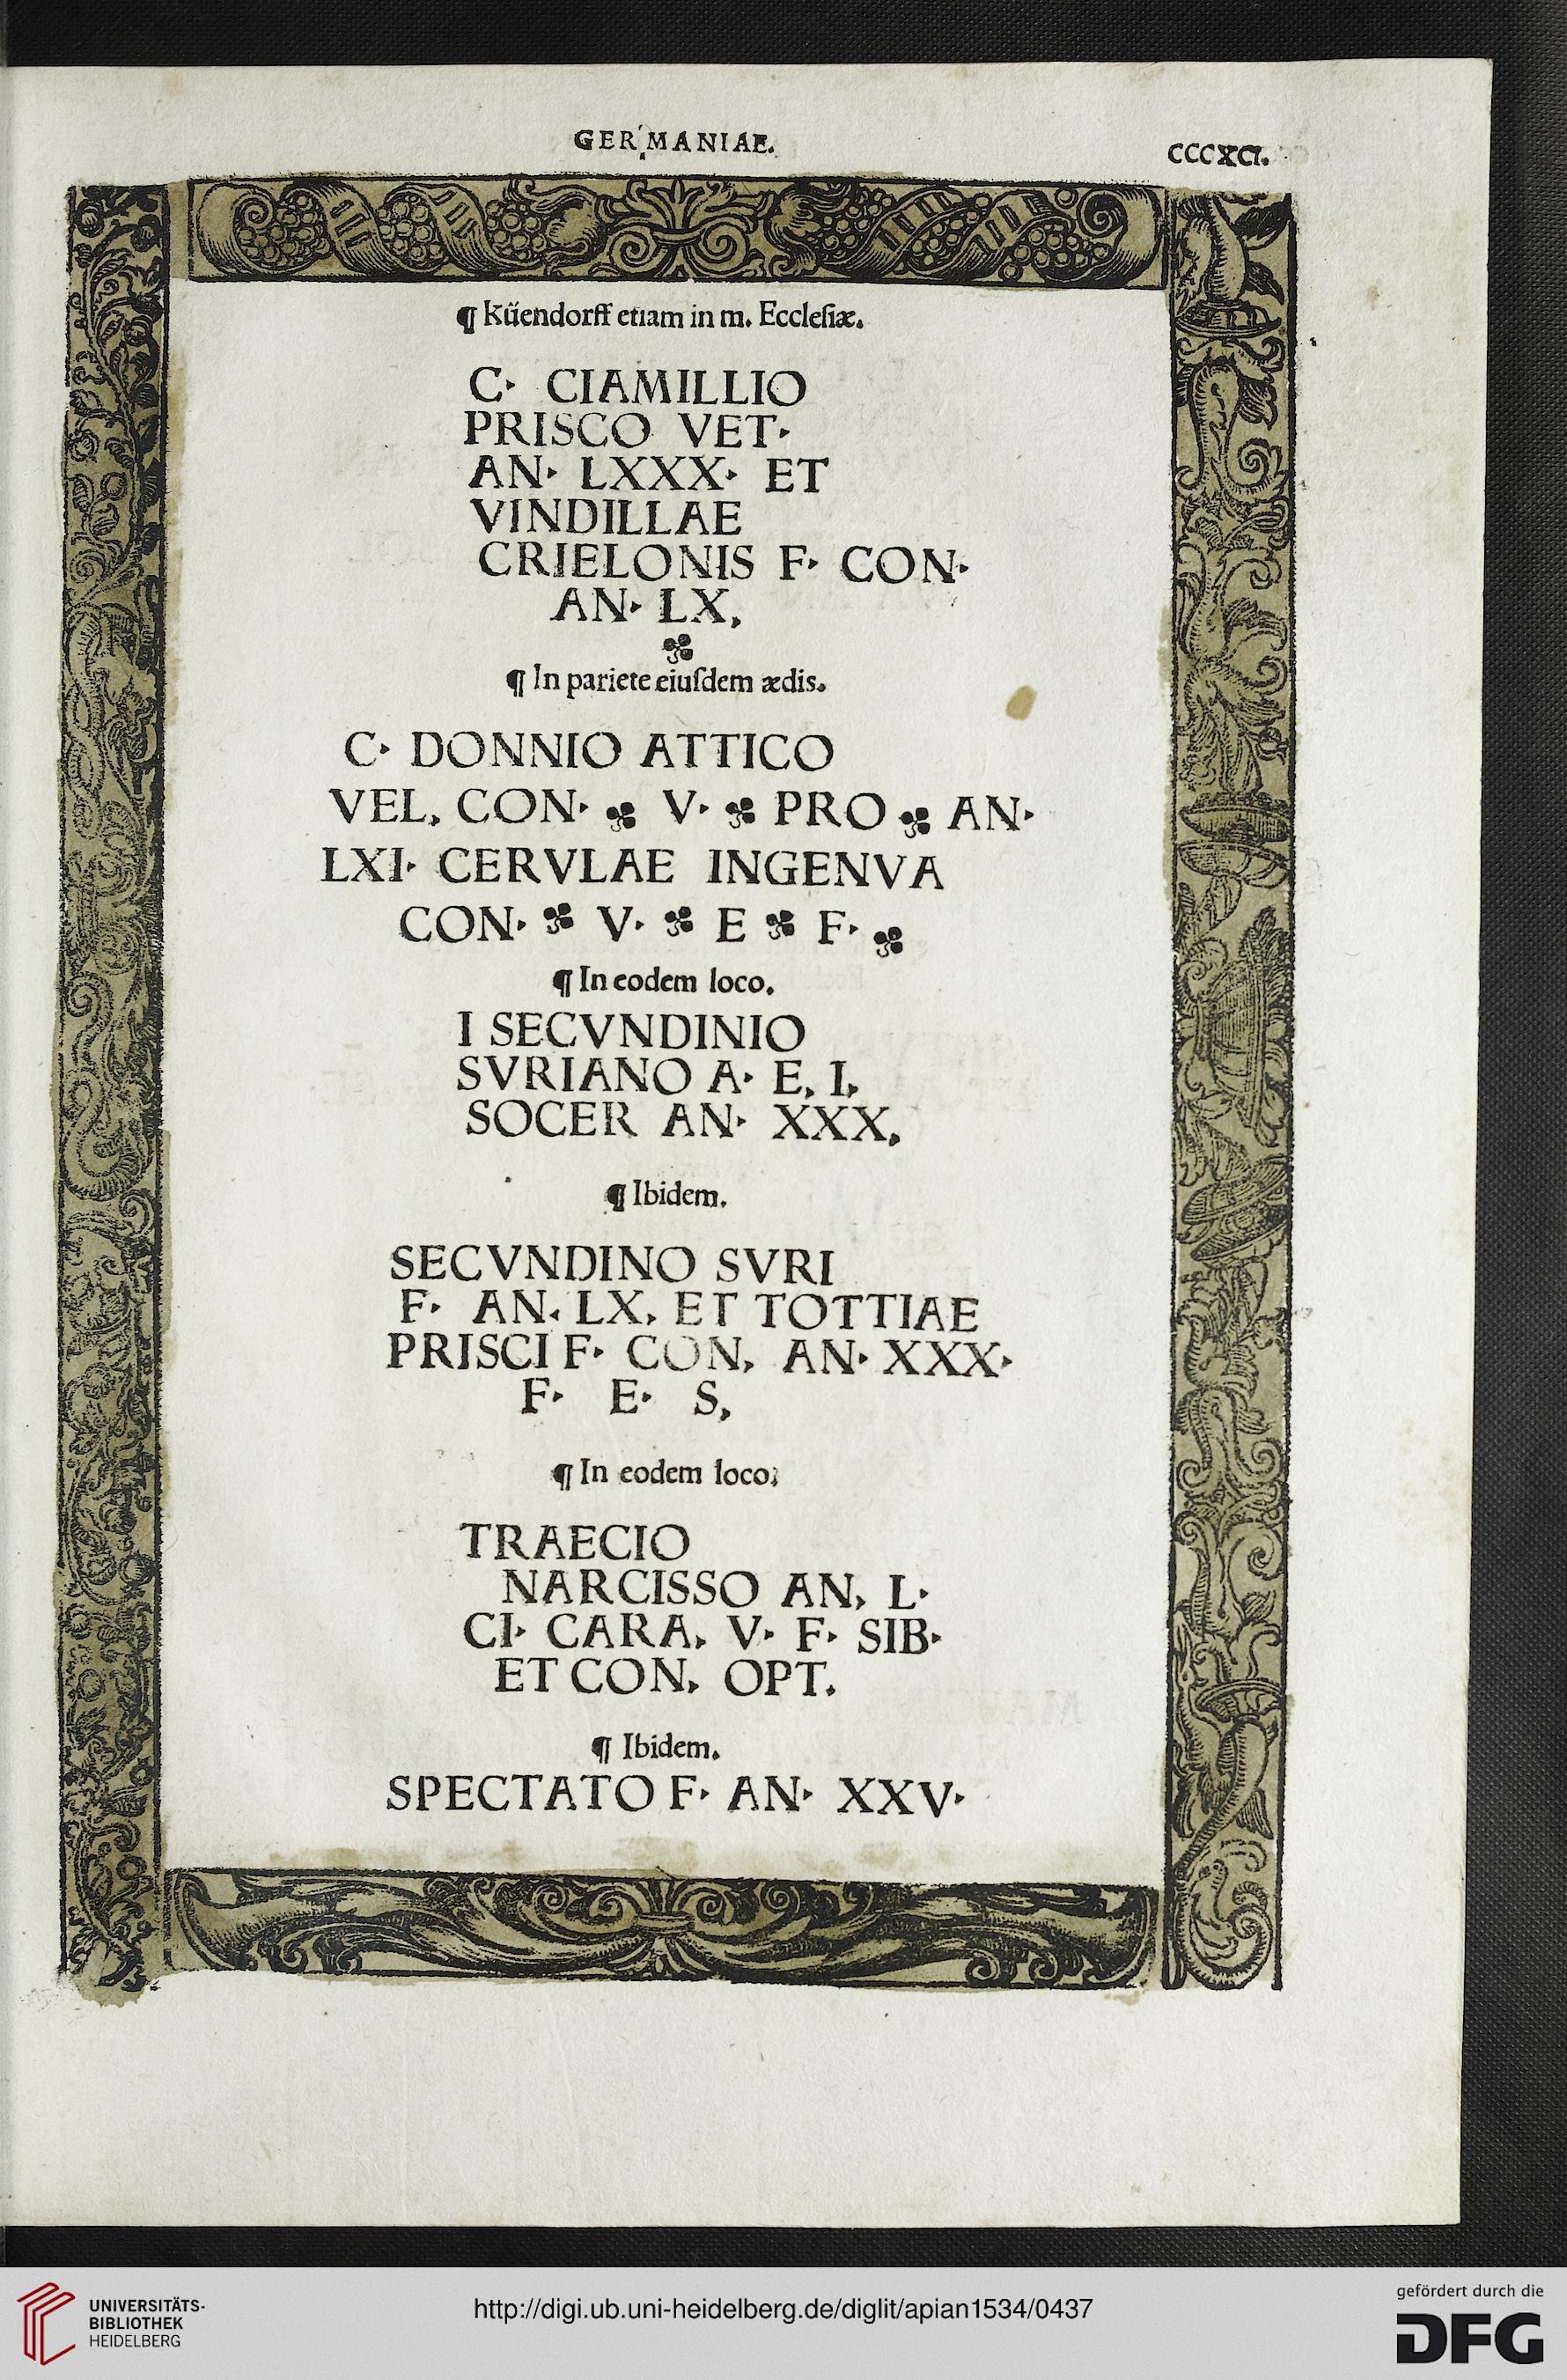 GERMANIAE.
CCCXCI.
¶ Küendorff etiam in m. Ecclesiæ.
C· CIAMILLIO
PRISCO VET·
AN· LXXX· ET
VINDILLAE
CRIELONIS F· CON·
AN· LX,
¶ In pariete eiuſdem ædis.
C· DONNIO ATTICO
VEL, CON· V· PRO AN·
LXI· CERVLAE INGENVA
CON· V· E F·
¶ In eodem loco.
I SECVNDINIO
SVRIANO A· E, I,
SOCER AN· XXX,
¶ Ibidem.
SECVNDINO SVRI
F· AN· LX, ET TOTTIAE
PRISCI F· CON, AN· XXX·
F· E· S,
¶ In eodem loco;
TRAECIO
NARCISSO AN, L·
CI· CARA, V· F· SIB·
ET CON, OPT.
¶ Ibidem.
SPECTATO F· AN· XXV·
UNIVERSITÄTS-
BIBLIOTHEK
HEIDELBERG
http://digi.ub.uni-heidelberg.de/diglit/apian1534/0437
gefördert durch die
DFG